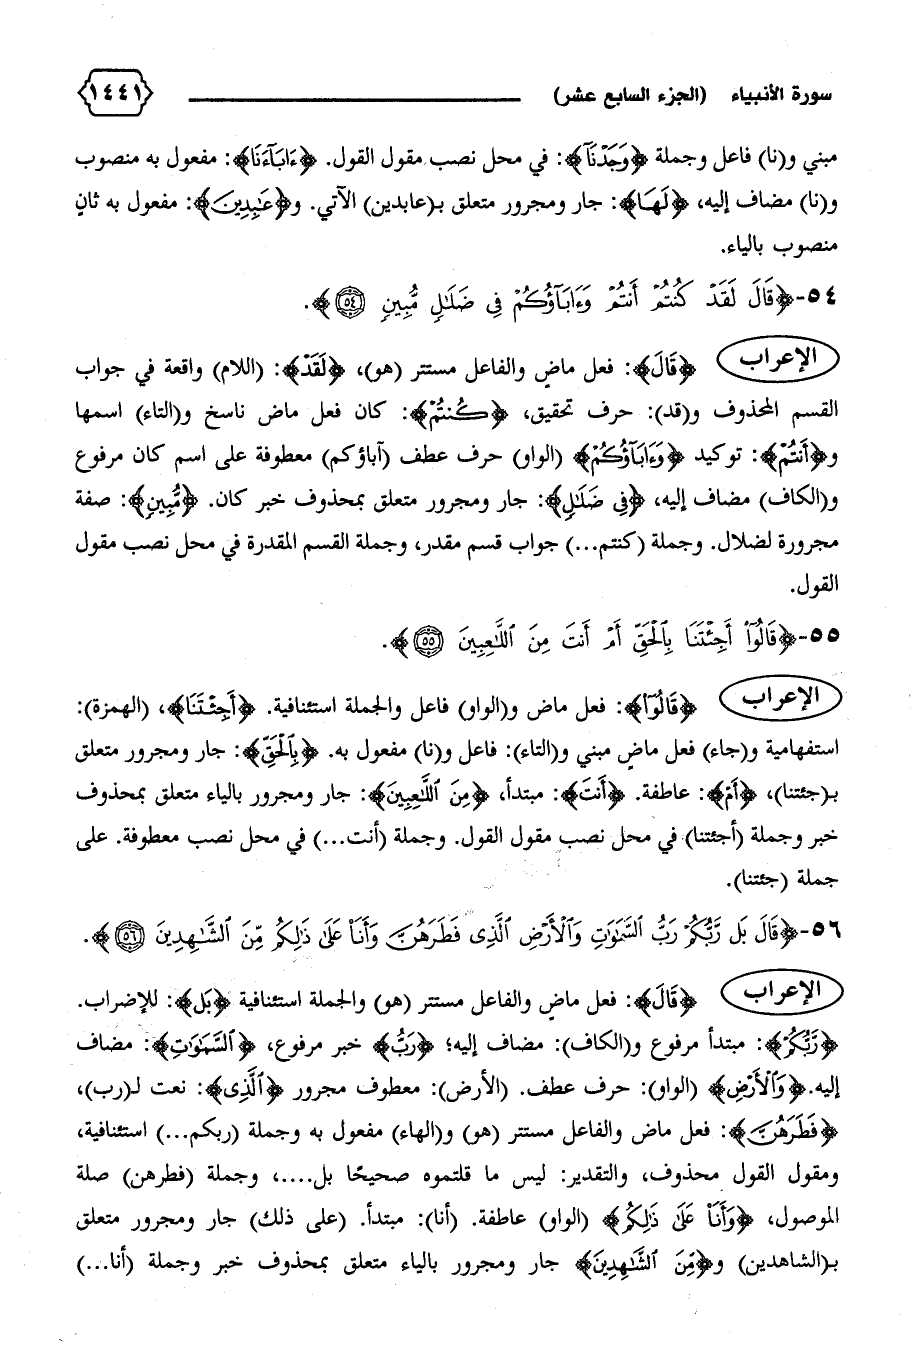 سورة الأنبياء (الجزء السابع عشر) ١٤٤١
مبني و(نا) فاعل وجملة ﴿وَجَدْنَآ﴾: في محل نصب مقول القول. ﴿ءَابَآءَنَا﴾: مفعول به منصوب
و(نا) مضاف إليه، ﴿لَهَا﴾: جار ومجرور متعلق بـ(عابدين) الآتي. و﴿عَٰبِدِينَ﴾: مفعول به ثانٍ
منصوب بالياء.
٥٤-﴿قَالَ لَقَدْ كُنتُمْ أَنتُمْ وَءَابَآؤُكُمْ فِى ضَلَٰلٍ مُّبِينٍ ٥٤﴾.
الإعراب ﴿قَالَ﴾: فعل ماضٍ والفاعل مستتر (هو)، ﴿لَقَدْ﴾: (اللام) واقعة في جواب
القسم المحذوف و(قد): حرف تحقيق، ﴿كُنتُمْ﴾: كان فعل ماض ناسخ و(التاء) اسمها
و﴿أَنتُمْ﴾: توكيد ﴿وَءَابَآؤُكُمْ﴾ (الواو) حرف عطف (آباؤكم) معطوفة على اسم كان مرفوع
و(الكاف) مضاف إليه، ﴿فِى ضَلَٰلٍ﴾: جار ومجرور متعلق بمحذوف خبر كان. ﴿مُّبِينٍ﴾: صفة
مجرورة لضلال. وجملة (كنتم...) جواب قسم مقدر، وجملة القسم المقدرة في محل نصب مقول
القول.
٥٥-﴿قَالُوٓا۟ أَجِئْتَنَا بِٱلْحَقِّ أَمْ أَنتَ مِنَ ٱللَّٰعِبِينَ ٥٥﴾.
الإعراب ﴿قَالُوٓا۟﴾: فعل ماض و(الواو) فاعل والجملة استئنافية. ﴿أَجِئْتَنَا﴾، (الهمزة):
استفهامية و(جاء) فعل ماضٍ مبني و(التاء): فاعل و(نا) مفعول به. ﴿بِٱلْحَقِّ﴾: جار ومجرور متعلق
بـ(جئتنا)، ﴿أَمْ﴾: عاطفة. ﴿أَنتَ﴾: مبتدأ، ﴿مِنَ ٱللَّٰعِبِينَ﴾: جار ومجرور بالياء متعلق بمحذوف
خبر وجملة (أجئتنا) في محل نصب مقول القول. وجملة (أنت...) في محل نصب معطوفة. على
جملة (جئتنا).
٥٦-﴿قَالَ بَل رَّبُّكُمْ رَبُّ ٱلسَّمَٰوَٰتِ وَٱلْأَرْضِ ٱلَّذِى فَطَرَهُنَّ وَأَنَا۠ عَلَىٰ ذَٰلِكُم مِّنَ ٱلشَّٰهِدِينَ ٥٦﴾.
الإعراب ﴿قَالَ﴾: فعل ماضٍ والفاعل مستتر (هو) والجملة استئنافية ﴿بَل﴾: للإضراب.
﴿رَّبُّكُمْ﴾: مبتدأ مرفوع و(الكاف): مضاف إليه؛ ﴿رَبُّ﴾ خبر مرفوع، ﴿ٱلسَّمَٰوَٰتِ﴾: مضاف
إليه. ﴿وَٱلْأَرْضِ﴾ (الواو): حرف عطف. (الأرض): معطوف مجرور ﴿ٱلَّذِى﴾: نعت لـ(رب)،
﴿فَطَرَهُنَّ﴾: فعل ماض والفاعل مستتر (هو) و(الهاء) مفعول به وجملة (ربكم...) استئنافية،
ومقول القول محذوف، والتقدير: ليس ما قلتموه صحيحًا بل....، وجملة (فطرهن) صلة
الموصول، ﴿وَأَنَا۠ عَلَىٰ ذَٰلِكُم﴾ (الواو) عاطفة. (أنا): مبتدأ. (على ذلك) جار ومجرور متعلق
بـ(الشاهدين) و﴿مِّنَ ٱلشَّٰهِدِينَ﴾ جار ومجرور بالياء متعلق بمحذوف خبر وجملة (أنا...)